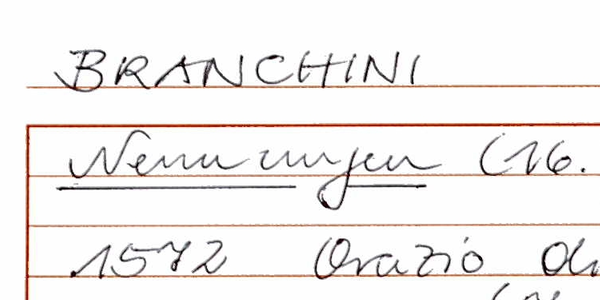 BRANCHINI
Nennungen (16.
1572 Orazio